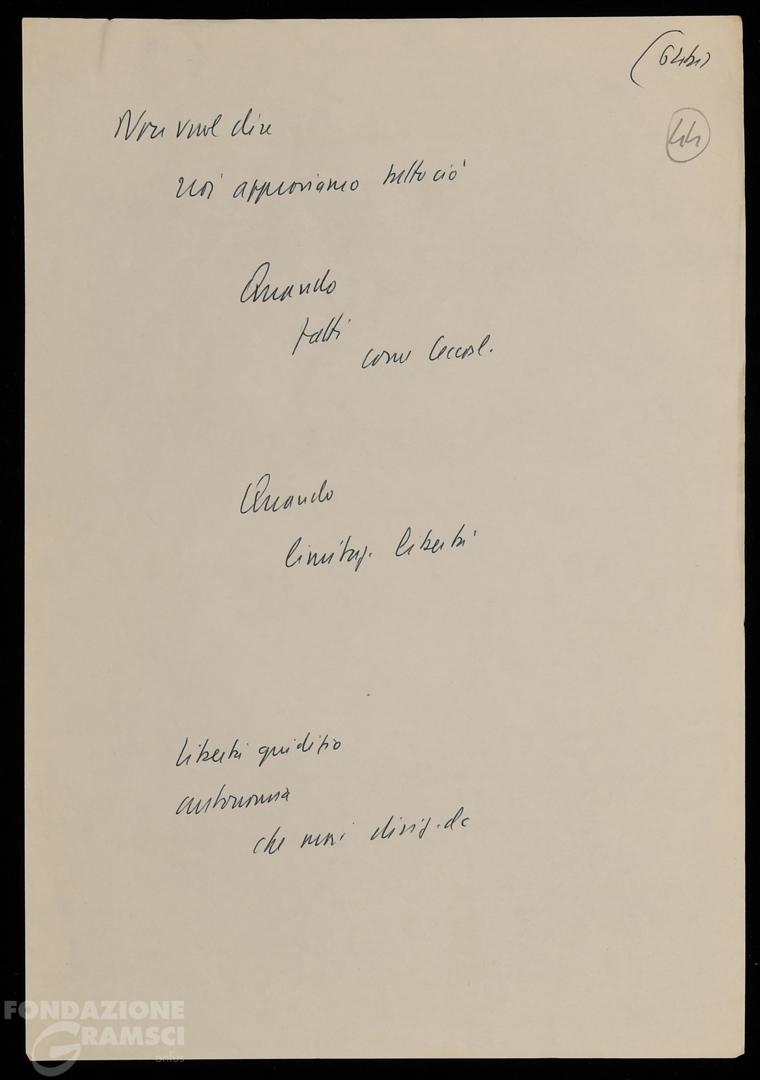 44
Non vuol dire
noi approviamo tutto ciò
Quando
fatti
come Cecosl.
Quando
limitaz. libertà
libertà giudizio
autonomia
che noi
FONDAZIONE
GRAMSCI
onlus